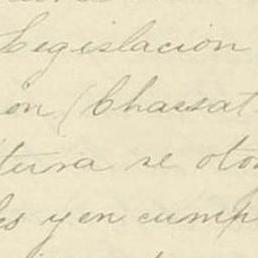 Legislación
ón (Chassat
tura se oto
les y en cump